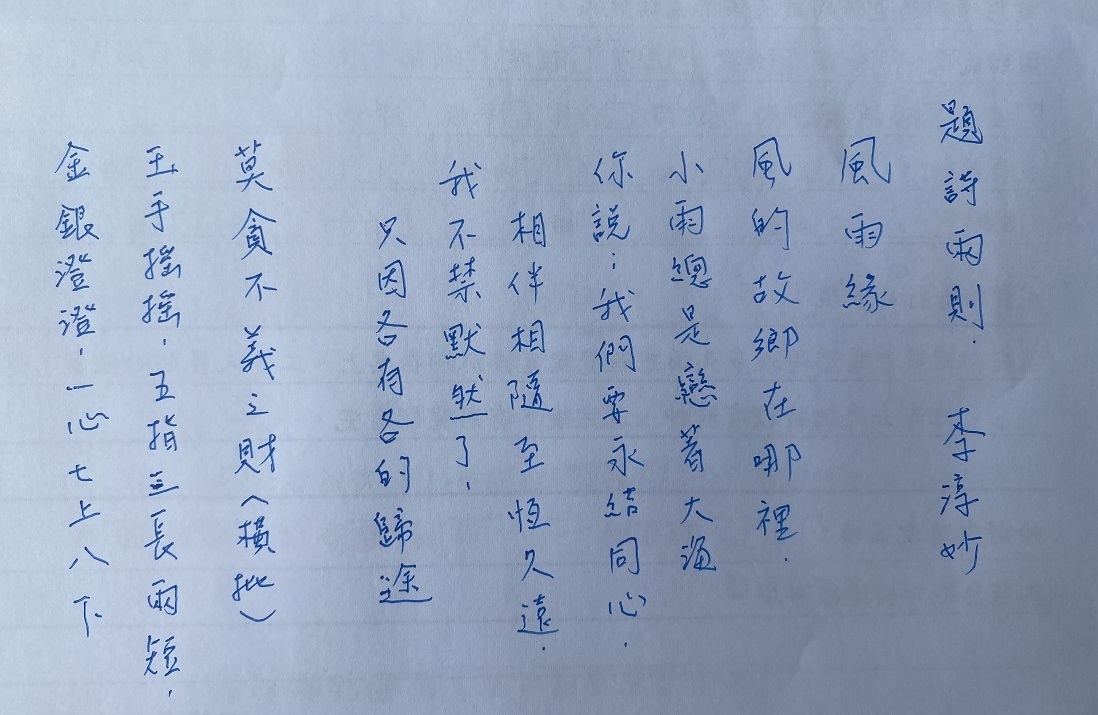 題詩兩則. 李淳妙
風雨緣
風的故鄉在哪裡.
小雨總是戀著大海
你說:我們要永結同心.
相伴相隨至恒久遠.
我不禁默然了.
只因各有各的歸途
莫貪不義之財(橫批)
玉手搖搖.五指三長兩短.
金銀澄澄.一心七上八下